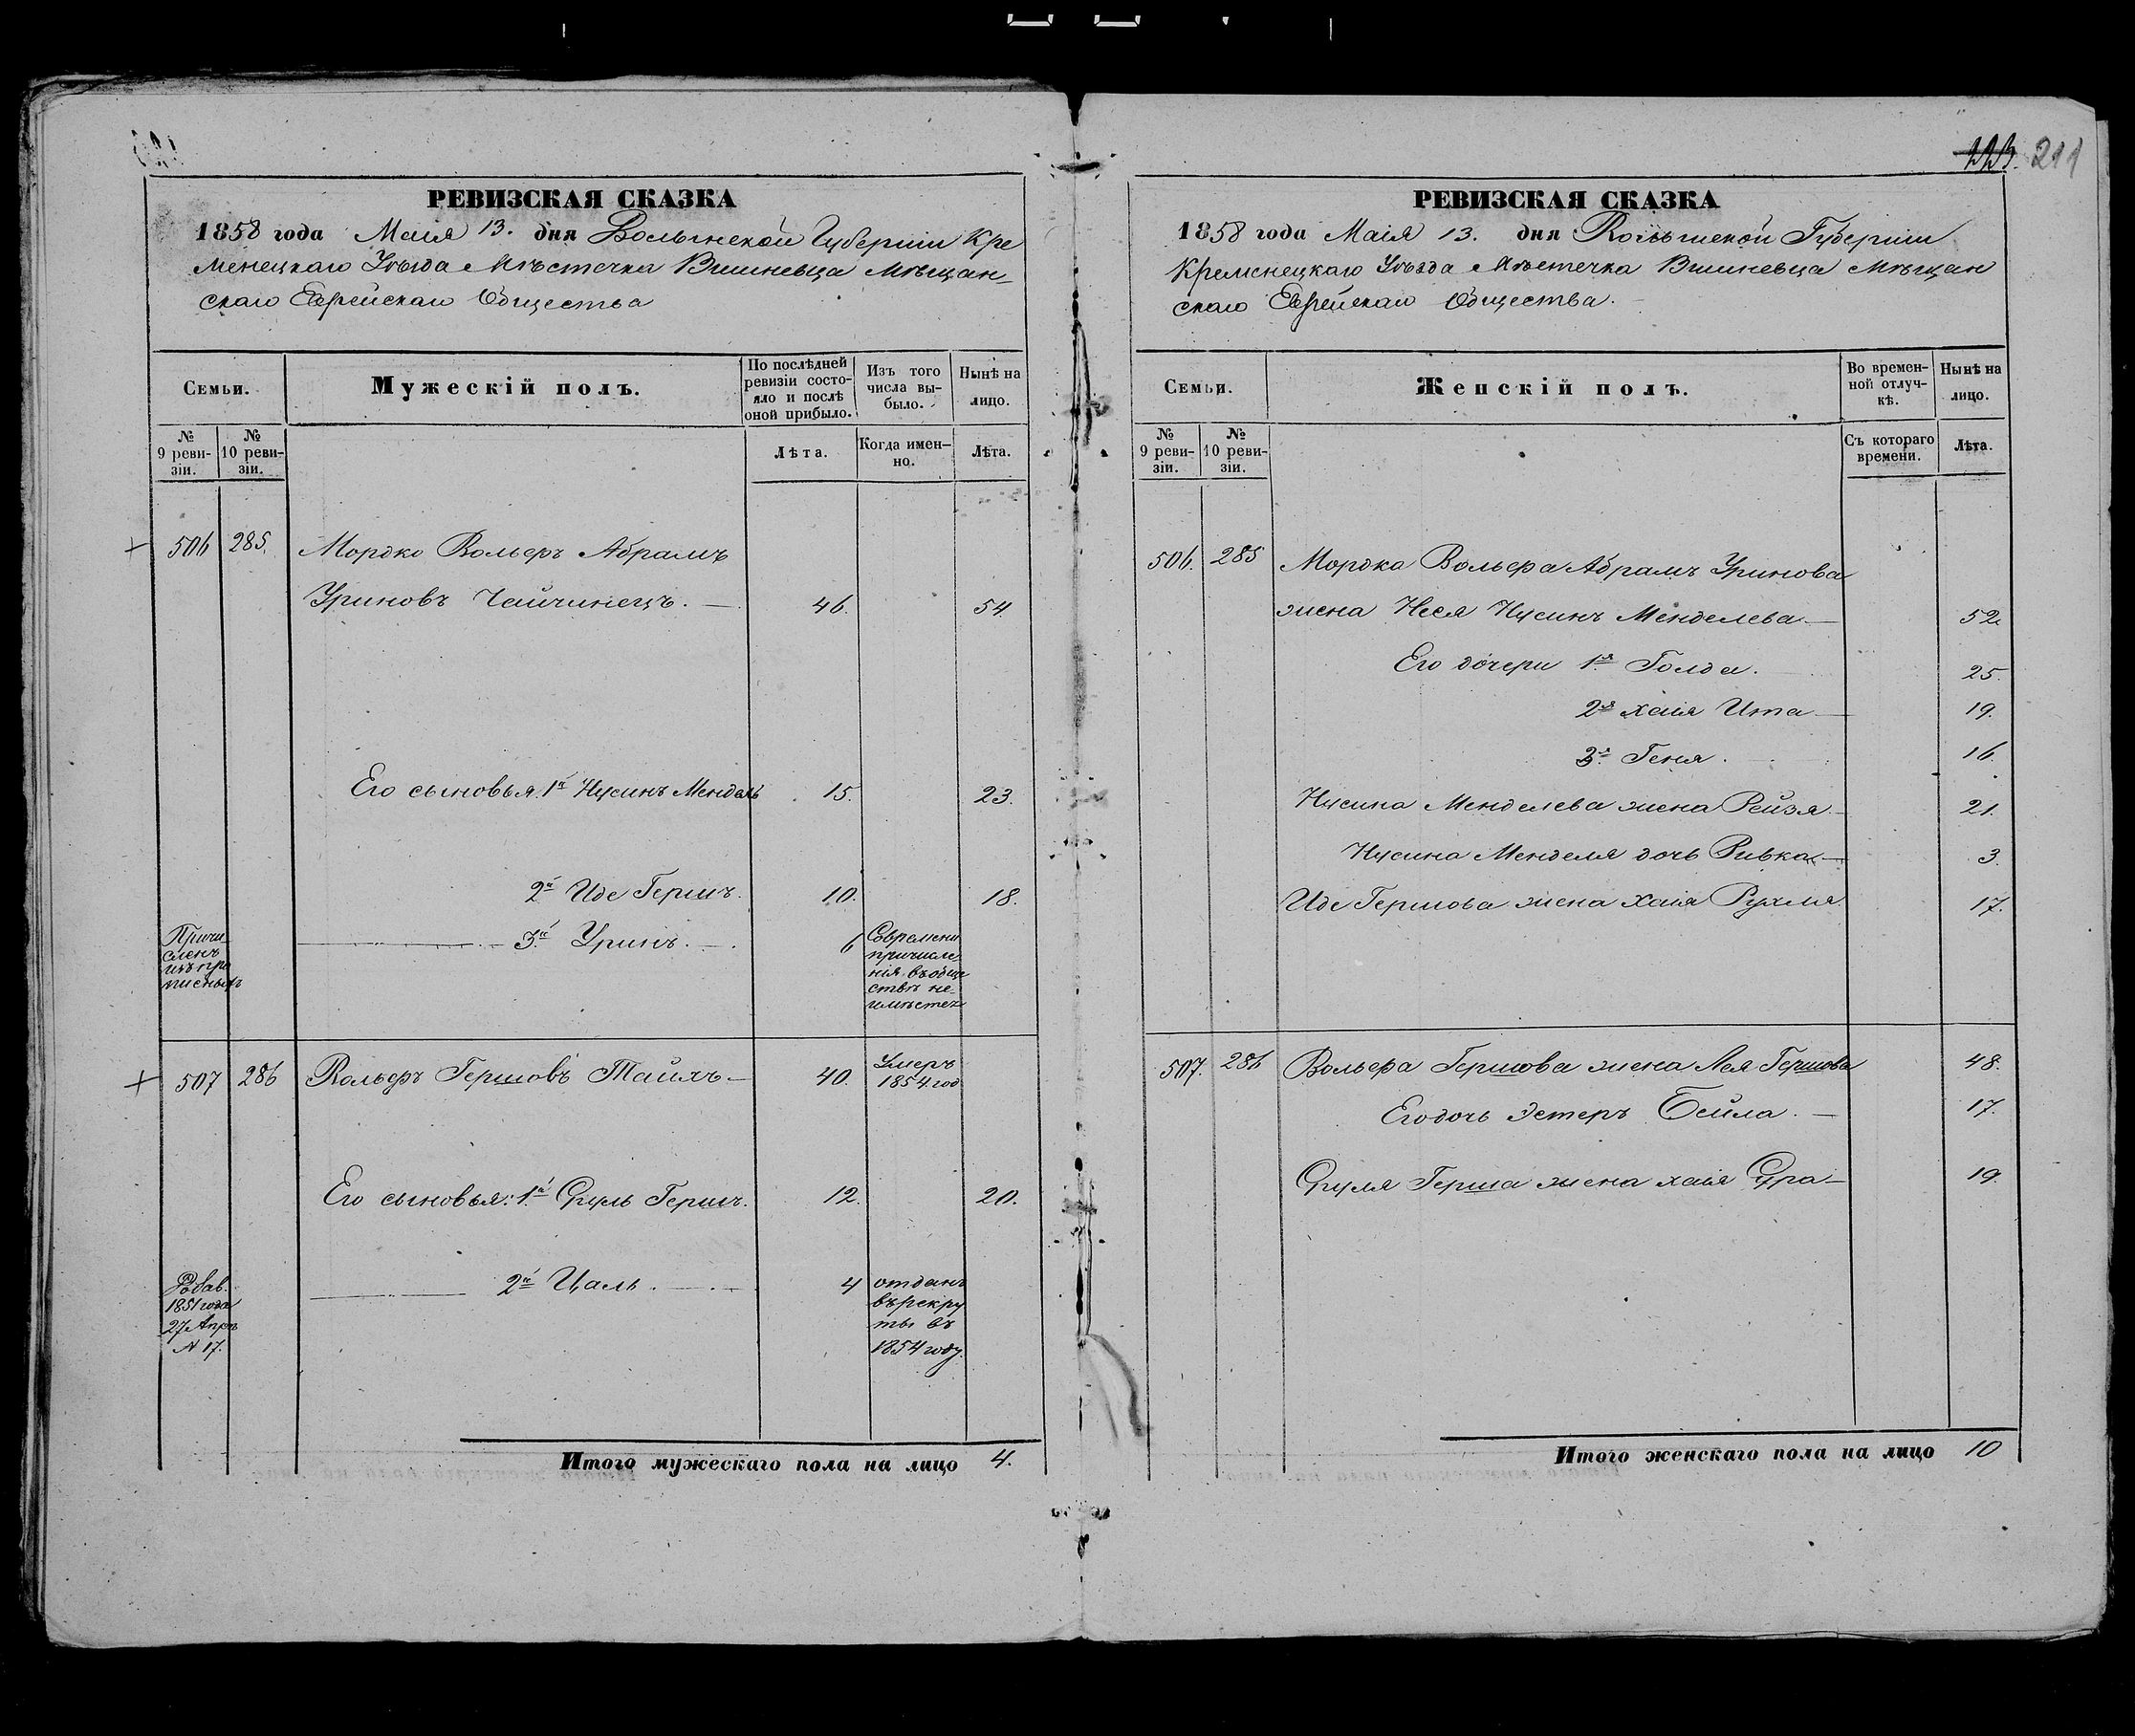 223. 211
РЕВИЗСКАЯ СКАЗКА
1858 года Маія 13. дня Волынской Губерніи Кре
менецкаго Уѣзда Мѣстечка Вишневца Мѣщан-
скаго Еврейскаго Общества
Семьи.
Мужескій полъ.
По послѣдней
ревизіи состо-
яло и послѣ
оной прибыло.
Изъ того
числа вы-
было.
Нынѣ на
лицо.
№
9 реви-
зіи.
№
10 реви-
зіи.
Лѣта.
Когда имен-
но.
Лѣта.
506 285. Мордко Вольфъ Абрамъ
Уриновъ Чайчинецъ. 46. 54.
Его сыновья 1й Нусинъ Мендель 15. 23.
2й Иде Гершъ. 10. 18.
3й Уринъ. 6
Причи
сленъ
изъ про
писныхъ
Со времени
причисле-
нія въ обще
ствѣ не-
имѣется
507 286 Вольфъ Гершовъ Тайхъ 40.
Умеръ
1854 год
Его сыновья: 1й Сруль Гершъ. 12. 20.
2й Цаль. 4
Добав.
1851 года
27 Апрѣ
№ 17.
отданъ
въ рекру
ты въ
1854 году.
Итого мужескаго пола на лицо 4.
РЕВИЗСКАЯ СКАЗКА
1858 года Маія 13. дня Волынской Губерніи
Кременецкаго Уѣзда Мѣстечка Вишневца Мѣщан
скаго Еврейскаго Общества.
Семьи.
Женскій полъ.
Во времен-
ной отлуч-
кѣ.
Нынѣ на
лицо.
№
9 реви-
зіи.
№
10 реви-
зіи.
Съ котораго
времени.
Лѣта.
506. 285 Мордка Вольфа Абрамъ Уринова
жена Неся Нусинъ Менделева 52.
Его дочери 1я Голда. 25.
2я Хаія Ита 19.
3я Геня. 16.
Нусина Менделева жена Рейзя 21.
Нусина Менделя дочь Ривка 3.
Иде Гершова жена Хаія Рухля 17.
507. 286 Вольфа Гершова жена Лея Гершова 48.
Его дочь Эстеръ Бейла. 17.
Сруля Герша жена Хаія Сура 19.
Итого женскаго пола на лицо 10